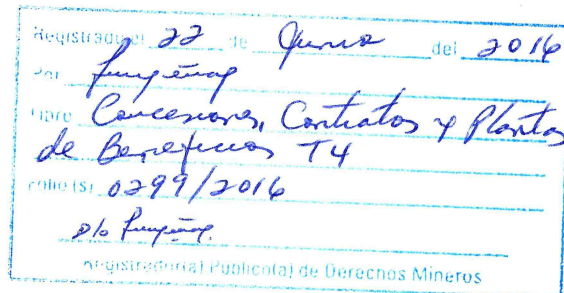 Registrado el 22 de Junio del 2016
Por
Libro Concesiones, Contratos y Plantas
de Beneficios T4
Folio (s) 0299/2016
Registrador(a) Publico(a) de Derechos Mineros